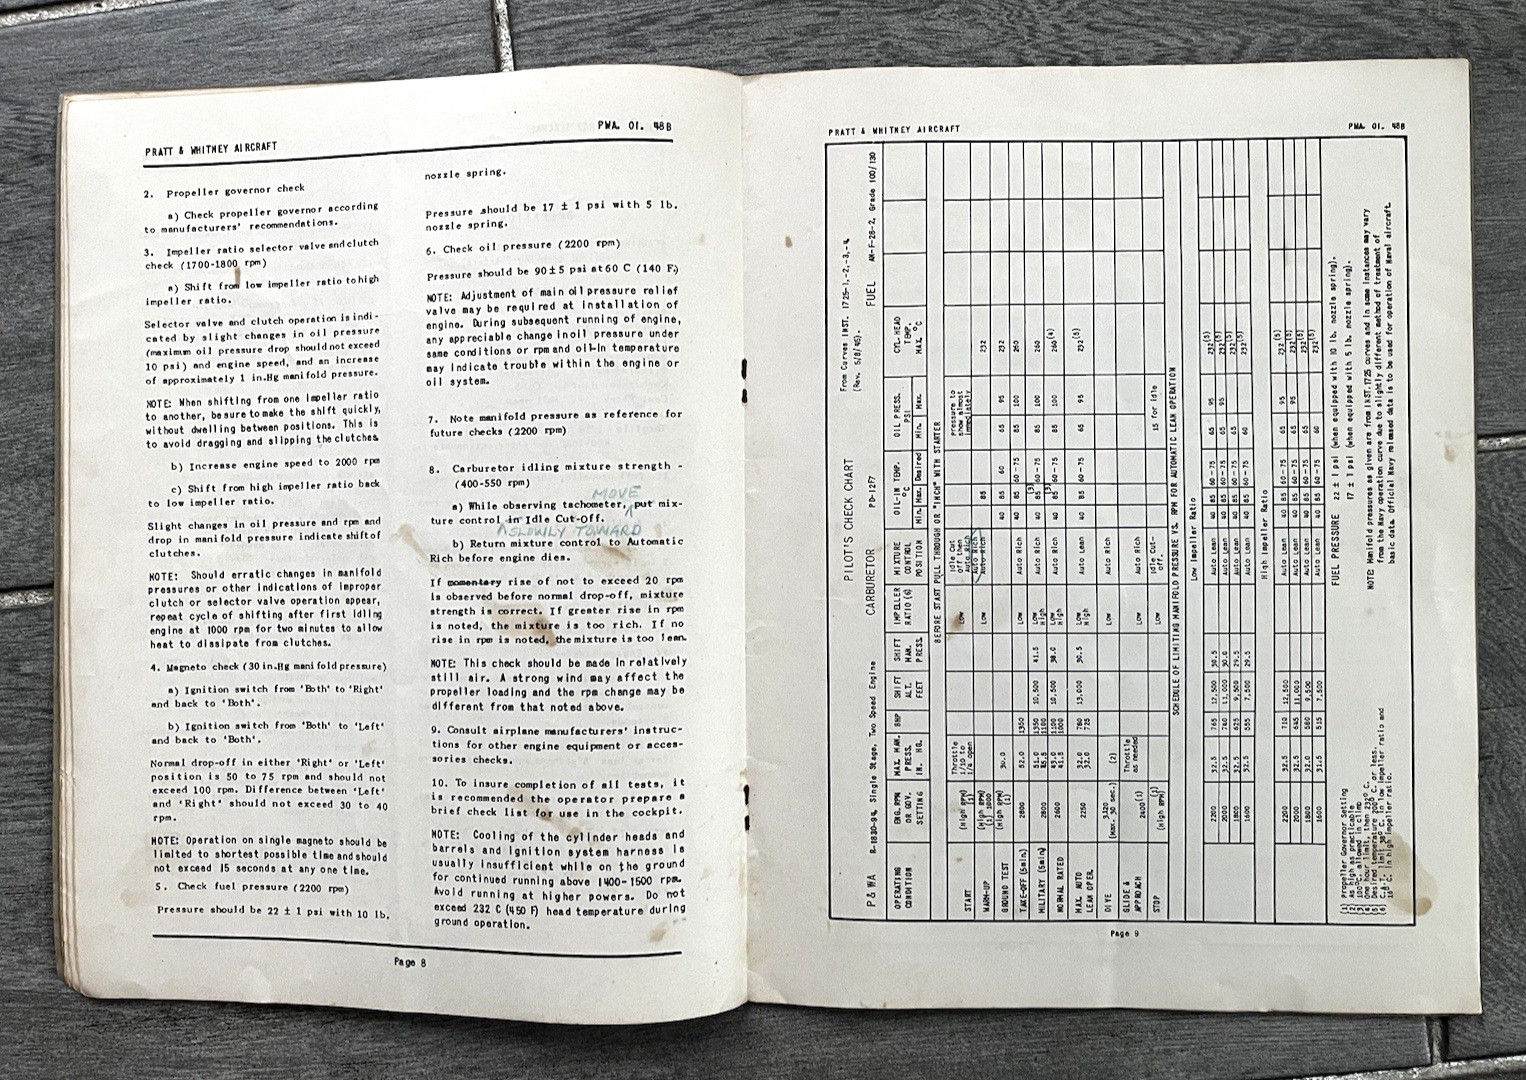 PRATT & WHITNEY AIRCRAFT
PWA. OI. 48B
2. Propeller governor check
a) Check propeller governor according
to manufacturers' recommendations.
3. Impeller ratio selector valve and clutch
check (1700-1800 rpm)
a) Shift from low impeller ratio to high
impeller ratio.
Selector valve and clutch operation is indi-
cated by slight changes in oil pressure
(maximum oil pressure drop should not exceed
10 psi) and engine speed, and an increase
of approximately 1 in.Hg manifold pressure.
NOTE: When shifting from one impeller ratio
to another, be sure to make the shift quickly,
without dwelling between positions. This is
to avoid dragging and slipping the clutches.
b) Increase engine speed to 2000 rpm
c) Shift from high impeller ratio back
to low impeller ratio.
Slight changes in oil pressure and rpm and
drop in manifold pressure indicate shift of
clutches.
NOTE: Should erratic changes in manifold
pressures or other indications of improper
clutch or selector valve operation appear,
repeat cycle of shifting after first idling
engine at 1000 rpm for two minutes to allow
heat to dissipate from clutches.
4. Magneto check (30 in.Hg manifold pressure)
a) Ignition switch from 'Both' to 'Right'
and back to 'Both'.
b) Ignition switch from 'Both' to 'Left'
and back to 'Both'.
Normal drop-off in either 'Right' or 'Left'
position is 50 to 75 rpm and should not
exceed 100 rpm. Difference between 'Left'
and 'Right' should not exceed 30 to 40
rpm.
NOTE: Operation on single magneto should be
limited to shortest possible time and should
not exceed 15 seconds at any one time.
5. Check fuel pressure (2200 rpm)
Pressure should be 22 ± 1 psi with 10 lb.
nozzle spring.
Pressure should be 17 ± 1 psi with 5 lb.
nozzle spring.
6. Check oil pressure (2200 rpm)
Pressure should be 90±5 psi at 60 C (140 F.)
NOTE: Adjustment of main oil pressure relief
valve may be required at installation of
engine. During subsequent running of engine,
any appreciable change in oil pressure under
same conditions or rpm and oil-in temperature
may indicate trouble within the engine or
oil system.
7. Note manifold pressure as reference for
future checks (2200 rpm)
8. Carburetor idling mixture strength -
(400-550 rpm)
MOVE
a) While observing tachometer, put mix-
ture control in Idle Cut-Off.
SLOWLY TOWARD
b) Return mixture control to Automatic
Rich before engine dies.
If momentary rise of not to exceed 20 rpm
is observed before normal drop-off, mixture
strength is correct. If greater rise in rpm
is noted, the mixture is too rich. If no
rise in rpm is noted, the mixture is too lean.
NOTE: This check should be made in relatively
still air. A strong wind may affect the
propeller loading and the rpm change may be
different from that noted above.
9. Consult airplane manufacturers' instruc-
tions for other engine equipment or acces-
sories checks.
10. To insure completion of all tests, it
is recommended the operator prepare a
brief check list for use in the cockpit.
NOTE: Cooling of the cylinder heads and
barrels and ignition system harness is
usually insufficient while on the ground
for continued running above 1400-1500 rpm.
Avoid running at higher powers. Do not
exceed 232 C (450 F) head temperature during
ground operation.
Page 8
PRATT & WHITNEY AIRCRAFT
PWA. OI. 48B
PILOT'S CHECK CHART
From Curves INST. 1725-1,-2,-3,-4
(Rev. 5/8/45).
P & WA R-1830-94, Single Stage, Two Speed Engine CARBURETOR PD-12F7 FUEL AN-F-28-2, Grade 100/130
OPERATING CONDITION ENG. RPM OR GOV. SETTING MAX. MAN. PRESS. IN. HG. BHP SHIFT ALT. FEET SHIFT MAN. PRESS. IMPELLER RATIO (6) MIXTURE CONTROL POSITION OIL-IN TEMP. °C Min. Max. Desired OIL PRESS. PSI Min. Max. CYL. HEAD TEMP. MAX. °C
BEFORE START PULL THROUGH OR "INCH" WITH STARTER
START (High RPM) (1) Throttle 1/10 to 1/4 open Low Idle Cut off then Auto Rich Pressure to show almost immediately
WARM-UP (High RPM) (1) 1000 Low Auto Rich 85 232
GROUND TEST (High RPM) (1) 30.0 40 85 60 65 95 232
TAKE-OFF (5min.) 2800 52.0 1350 Low Auto Rich 40 85 60-75 85 100 260
MILITARY (5min) 2800 51.0 1350 10,500 41.5 Low Auto Rich 40 85(3) 60-75 85 100 260
45.5 1100 High
NORMAL RATED 2600 43.0 1100 10,500 38.0 Low Auto Rich 40 85(3) 60-75 85 100 260(4)
41.5 1000 High
MAX. AUTO LEAN OPER. 2250 32.0 780 13,000 30.5 Low Auto Lean 40 85 60-75 65 95 232(5)
32.0 725 High
DIVE 3120 (Max. 30 sec.) (2) Low Auto Rich
GLIDE & APPROACH 2450(1) Throttle as needed Low Auto Rich
STOP (High RPM) (1) Low Idle Cut-off. 15 for Idle
SCHEDULE OF LIMITING MANIFOLD PRESSURE VS. RPM FOR AUTOMATIC LEAN OPERATION
Low Impeller Ratio
2200 32.5 765 12,500 30.5 Auto Lean 40 85 60-75 65 95 232(5)
2000 32.5 740 11,000 30.0 Auto Lean 40 85 60-75 65 95 232(5)
1800 32.5 625 9,500 29.5 Auto Lean 40 85 60-75 65 232(5)
1600 32.5 555 7,500 29.5 Auto Lean 40 85 60-75 60 232(5)
High Impeller Ratio
2200 32.5 710 12,500 Auto Lean 40 85 60-75 65 95 232(5)
2000 32.5 645 11,000 Auto Lean 40 85 60-75 65 95 232(5)
1800 32.0 560 9,500 Auto Lean 40 85 60-75 65 232(5)
1600 31.5 515 7,500 Auto Lean 40 85 60-75 60 232(5)
FUEL PRESSURE 22 ± 1 psi (when equipped with 10 lb. nozzle spring).
17 ± 1 psi (when equipped with 5 lb. nozzle spring).
(1) Propeller Governor Setting
(2) As high as practicable
(3) 100°C. allowed in climb
(4) One hour limit, then 232° C.
(5) Desired temperature 200° C. or less.
(6) C.A.T. limit 38° C. in low impeller ratio and
15° C. in high impeller ratio.
NOTE: Manifold pressures as given are from INST. 1725 curves and in some instances may vary
from the Navy operation curve due to slightly different method of treatment of
basic data. Official Navy released data is to be used for operation of Naval aircraft.
Page 9